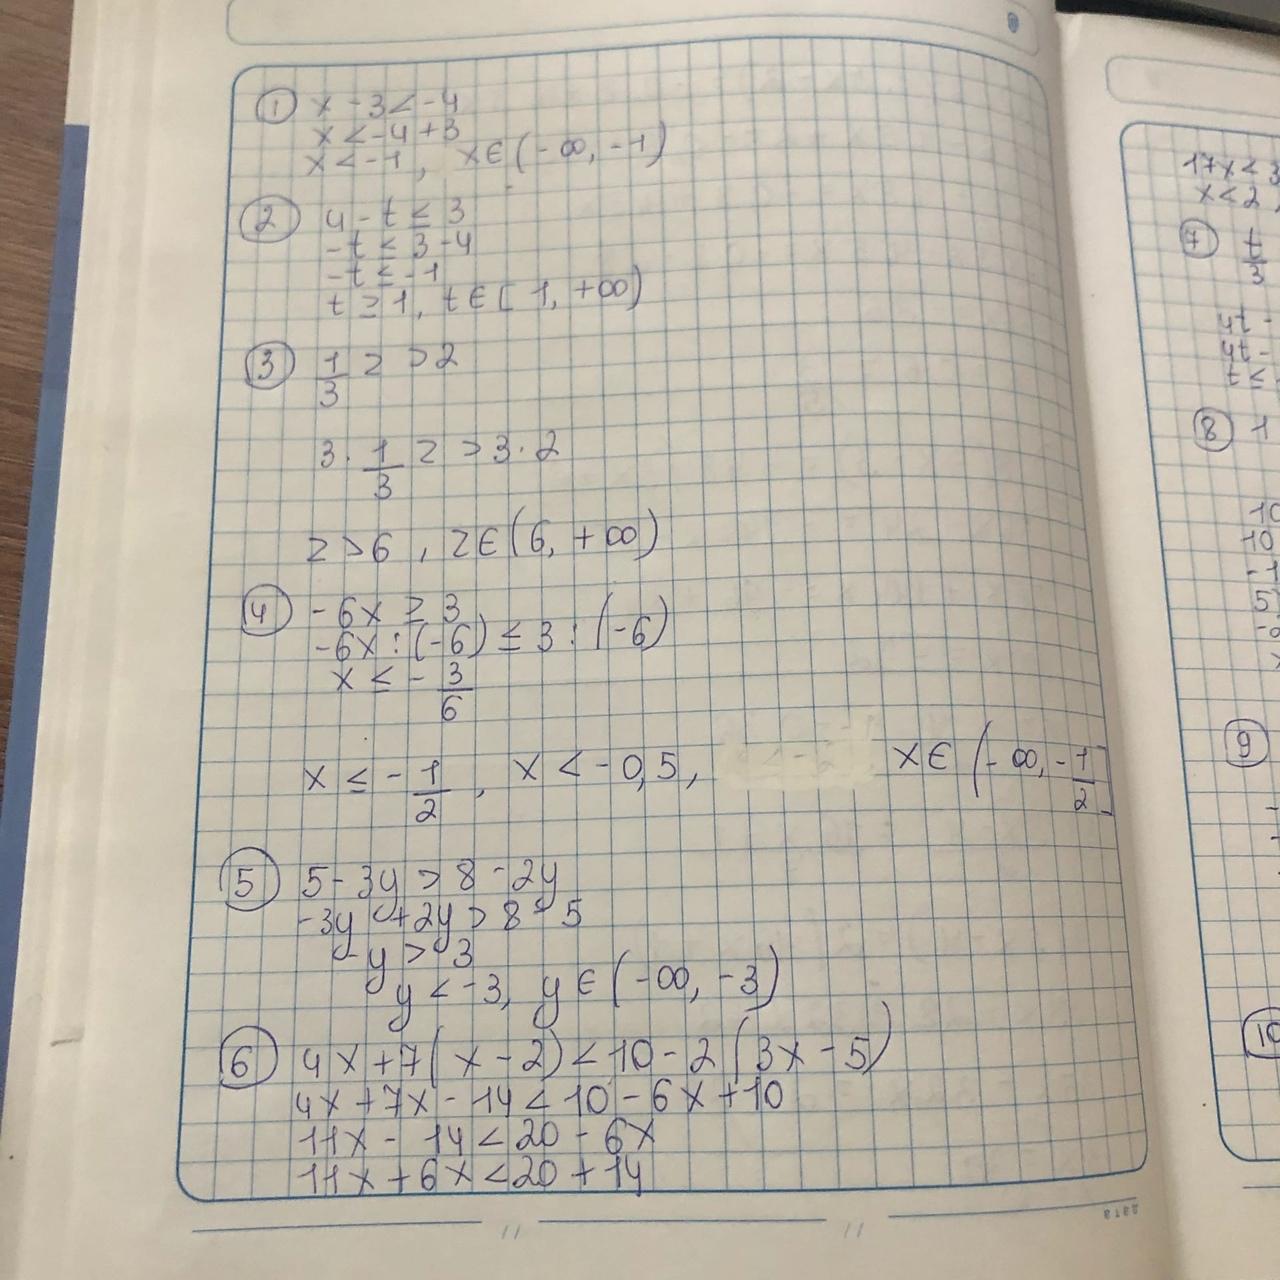 ① x - 3 < -4
x < -4 + 3
x < -1, x ∈ (-∞, -1)
② 4 - t ≤ 3
-t ≤ 3 - 4
-t ≤ -1
t ≥ 1, t ∈ [1, +∞)
③ 1/3 z > 2
3 · 1/3 z > 3 · 2
z > 6, z ∈ (6, +∞)
④ -6x ≥ 3
-6x : (-6) ≤ 3 : (-6)
x ≤ - 3/6
x ≤ - 1/2, x < -0,5, x ∈ (-∞, - 1/2]
⑤ 5 - 3y > 8 - 2y
-3y + 2y > 8 - 5
-y > 3
y < -3, y ∈ (-∞, -3)
⑥ 4x + 7(x - 2) < 10 - 2(3x - 5)
4x + 7x - 14 < 10 - 6x + 10
11x - 14 < 20 - 6x
11x + 6x < 20 + 14
дата
17x < 3
x < 2,
⑦ t/3
4t -
4t -
t ≤
⑧ 1
10
10
5
⑨
⑩